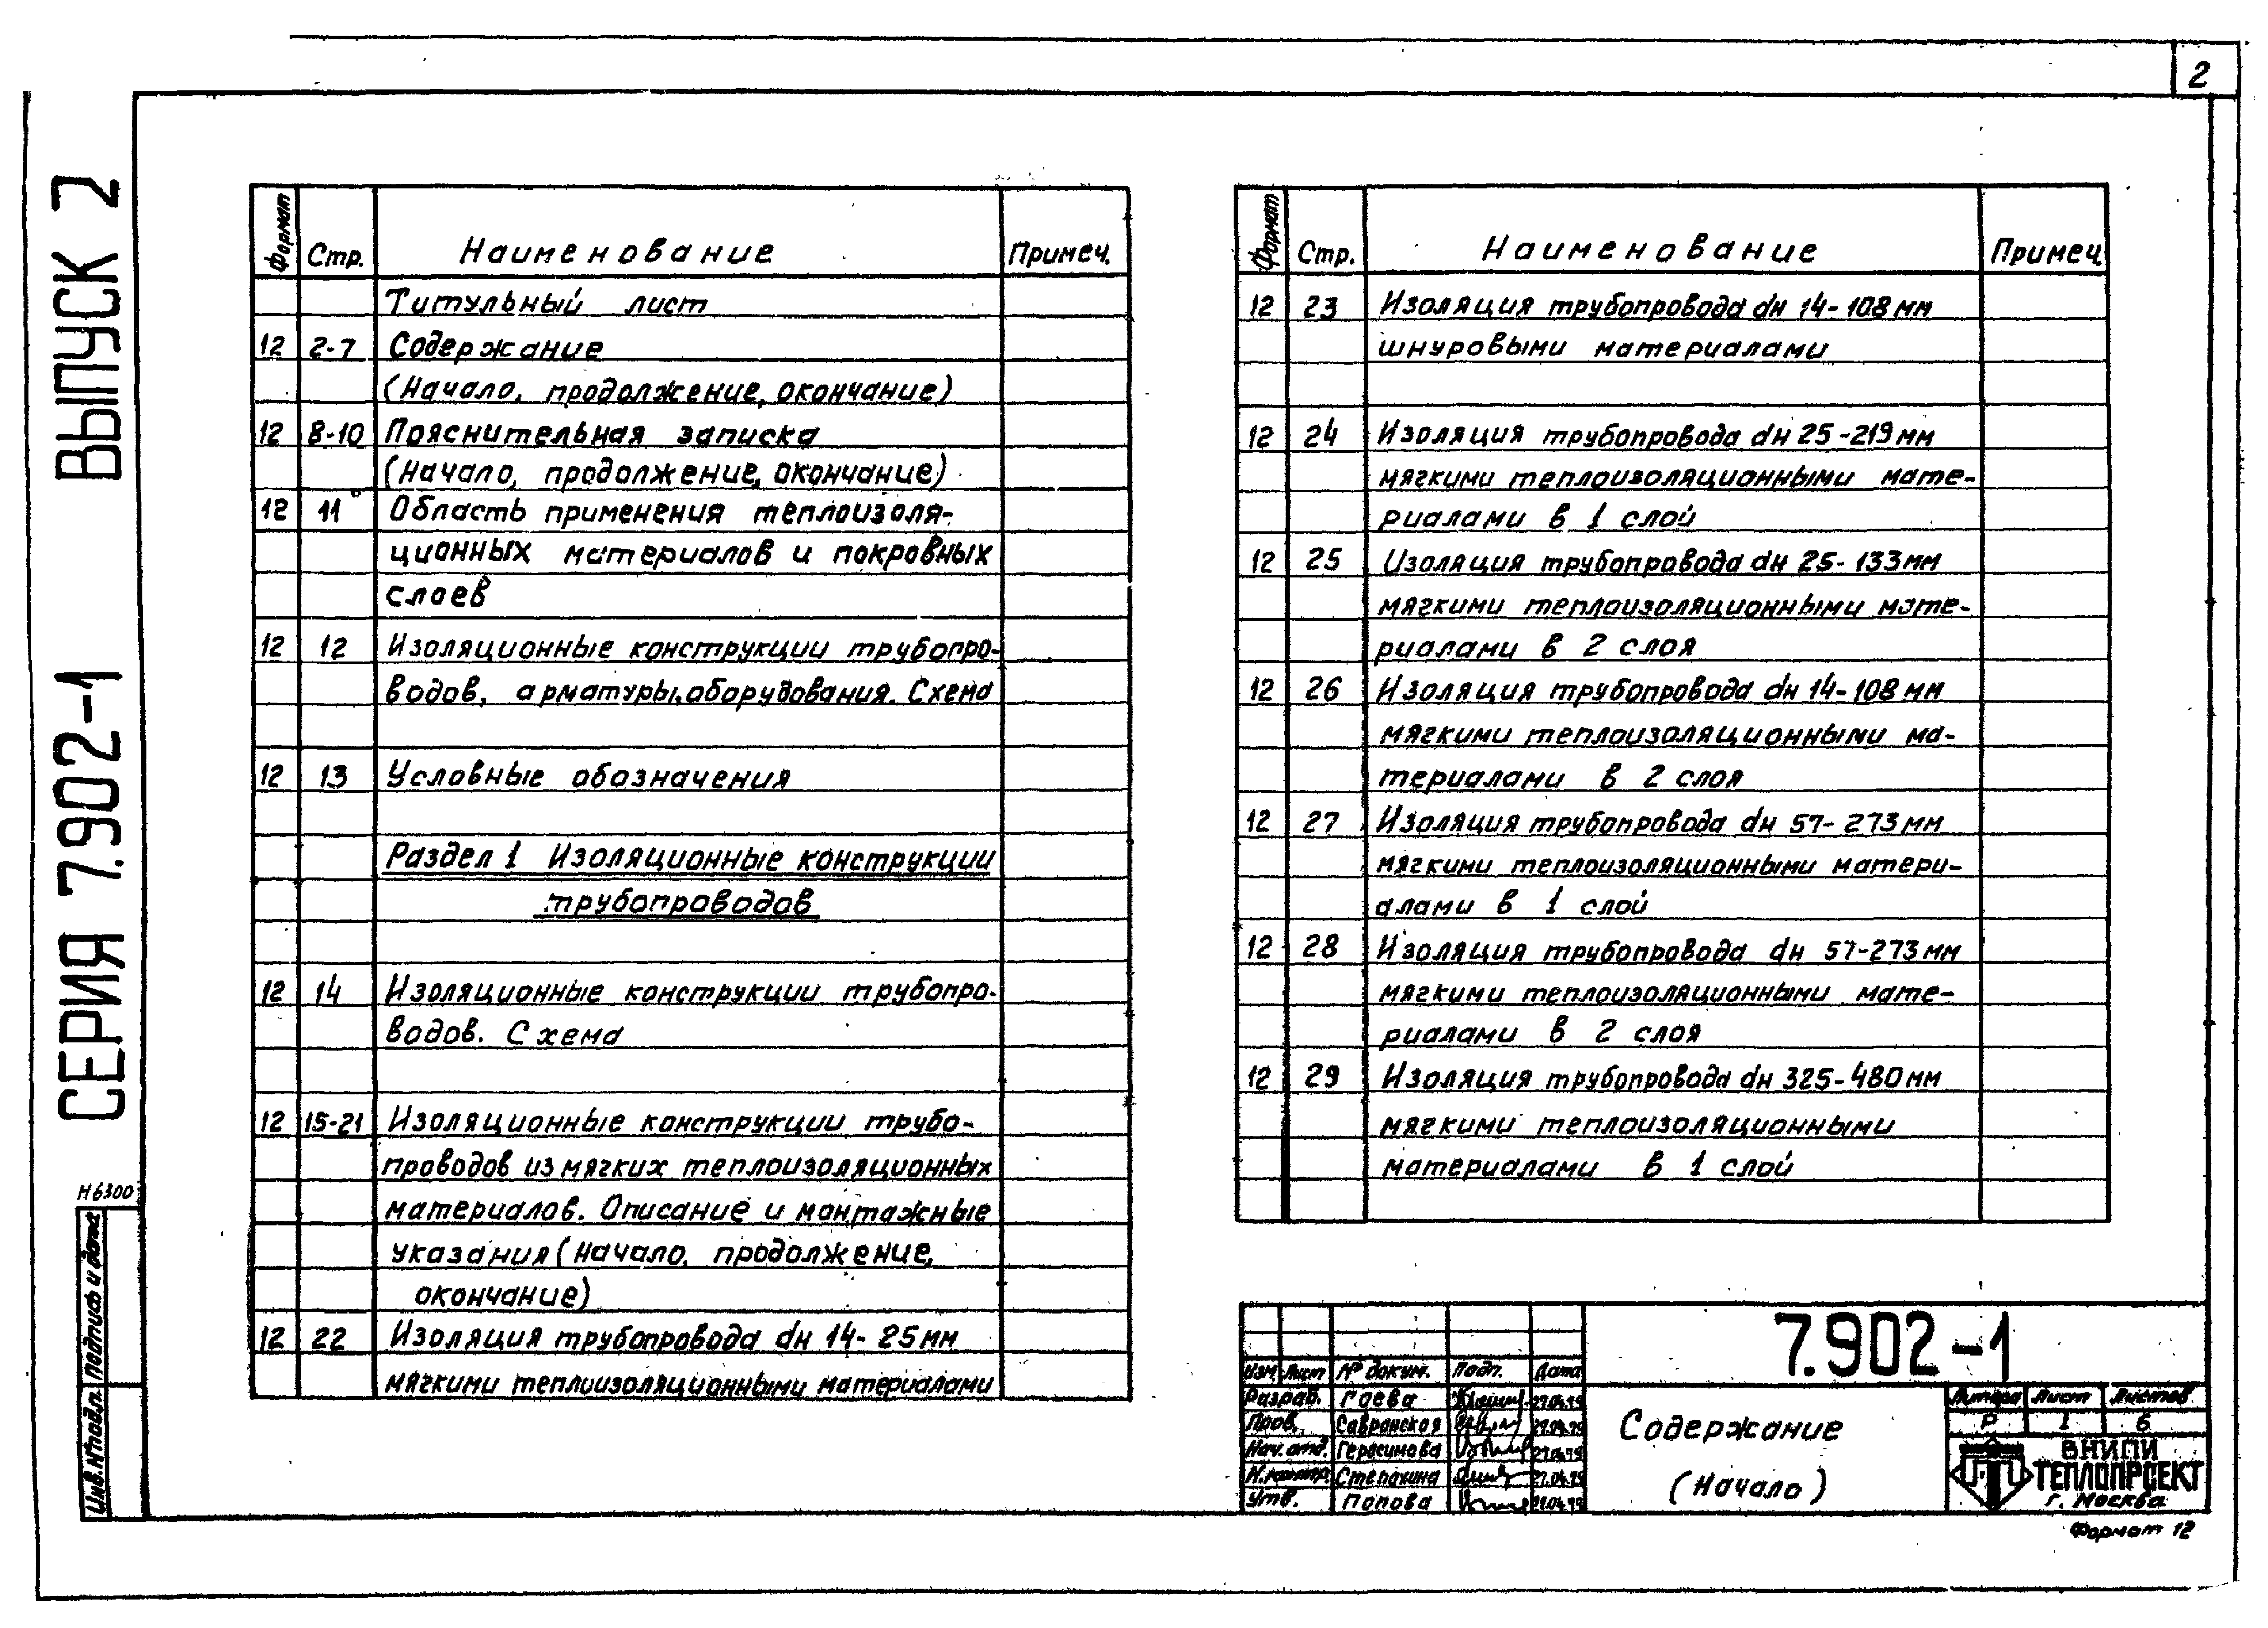 2
СЕРИЯ 7.902-1 ВЫПУСК 2
Формат Стр. Наименование Примеч.
Титульный лист
12 2-7 Содержание
(Начало, продолжение, окончание)
12 8-10 Пояснительная записка
(Начало, продолжение, окончание)
12 11 Область применения теплоизоля-
ционных материалов и покровных
слоев
12 12 Изоляционные конструкции трубопро-
водов, арматуры, оборудования. Схема
12 13 Условные обозначения
Раздел 1 Изоляционные конструкции
трубопроводов
12 14 Изоляционные конструкции трубопро-
водов. Схема
12 15-21 Изоляционные конструкции трубо-
проводов из мягких теплоизоляционных
материалов. Описание и монтажные
указания (Начало, продолжение,
окончание)
12 22 Изоляция трубопровода dн 14-25мм
мягкими теплоизоляционными материалами
Формат Стр. Наименование Примеч.
12 23 Изоляция трубопровода dн 14-108мм
шнуровыми материалами
12 24 Изоляция трубопровода dн 25-219мм
мягкими теплоизоляционными мате-
риалами в 1 слой
12 25 Изоляция трубопровода dн 25-133мм
мягкими теплоизоляционными мате-
риалами в 2 слоя
12 26 Изоляция трубопровода dн 14-108мм
мягкими теплоизоляционными ма-
териалами в 2 слоя
12 27 Изоляция трубопровода dн 57-273мм
мягкими теплоизоляционными матери-
алами в 1 слой
12 28 Изоляция трубопровода dн 57-273мм
мягкими теплоизоляционными мате-
риалами в 2 слоя
12 29 Изоляция трубопровода dн 325-480мм
мягкими теплоизоляционными
материалами в 1 слой
Н6300
Инв.№подл. Подпись и дата
7.902-1
Изм. Лист № докум. Подп. Дата
Разраб. Гаева 27.04.79
Пров. Савранская 27.04.79
Нач. отд. Герасимова 27.04.79
Н.контр. Степахина 27.04.79
Утв. Попова 27.04.79
Содержание
(Начало)
Литера Лист Листов
Р 1 6
ВНИПИ
ТЕПЛОПРОЕКТ
г. Москва
Формат 12